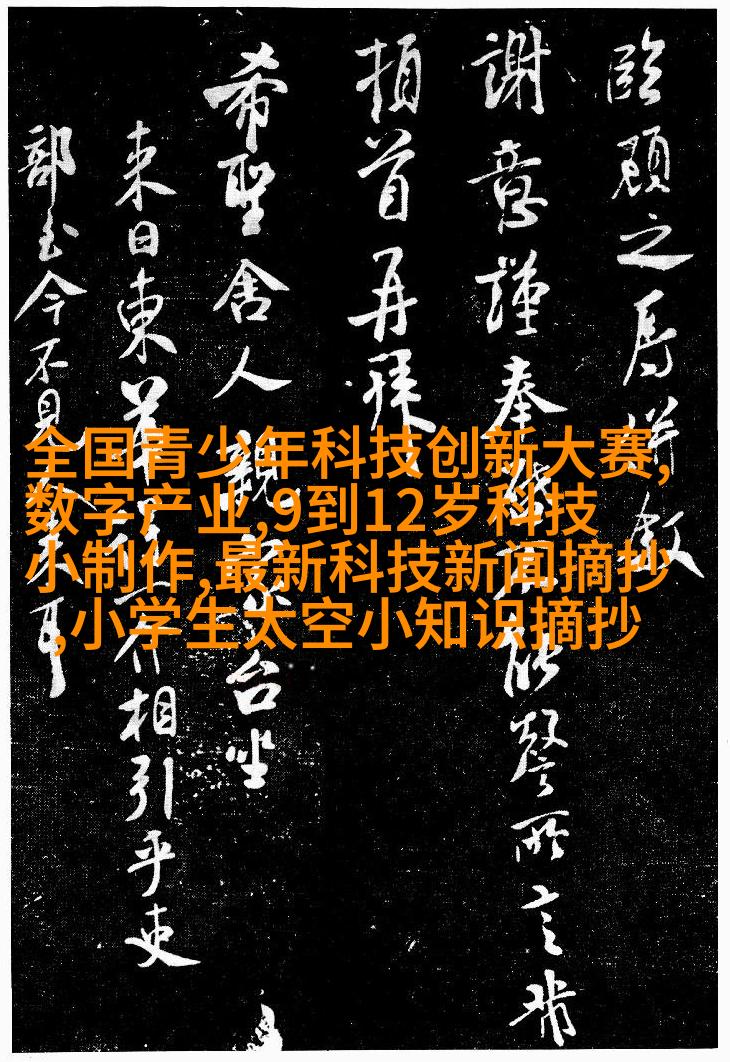 全国青少年科技创新大赛,
数字产业,9到12岁科技
小制作,最新科技新闻摘抄
,小学生太空小知识摘抄
臨顧之
謝意謹奉 能 所言
頓首再拜
希聖舍人親 台坐
来日東華 相引乎更
部至今不見 耳